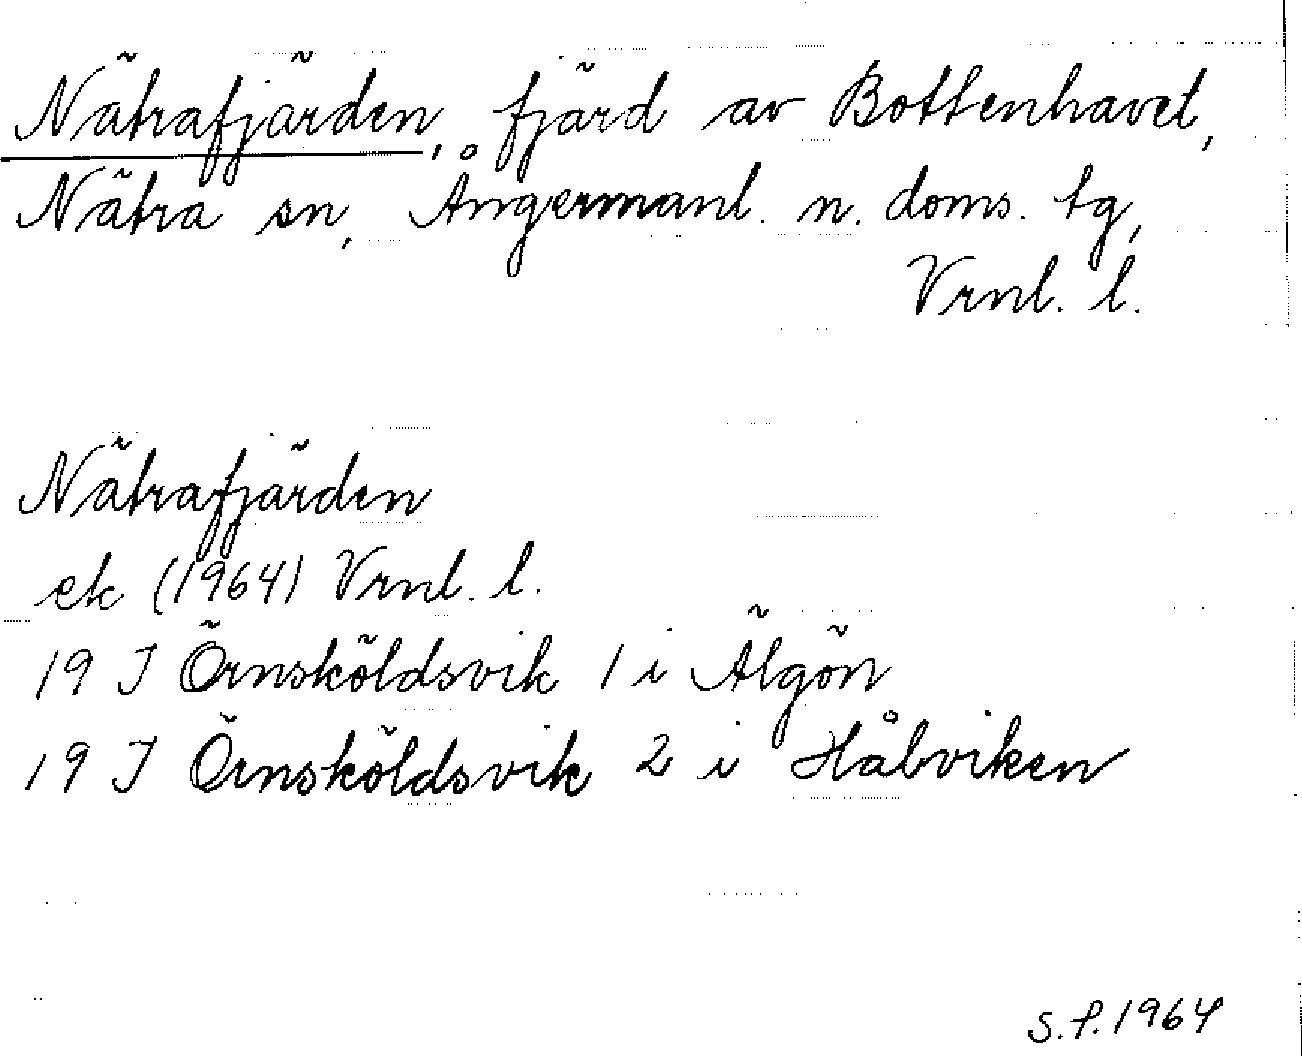 Nätrafjärden, fjärd av Bottenhavet,
Nätra sn, Ångermanl. n. doms. tg,
Vrnl. l.
Nätrafjärden
ek (1964) Vrnl. l.
19 J Örnsköldsvik 1 i Älgön
19 J Örnsköldsvik 2 i Hålviken
S.P. 1964